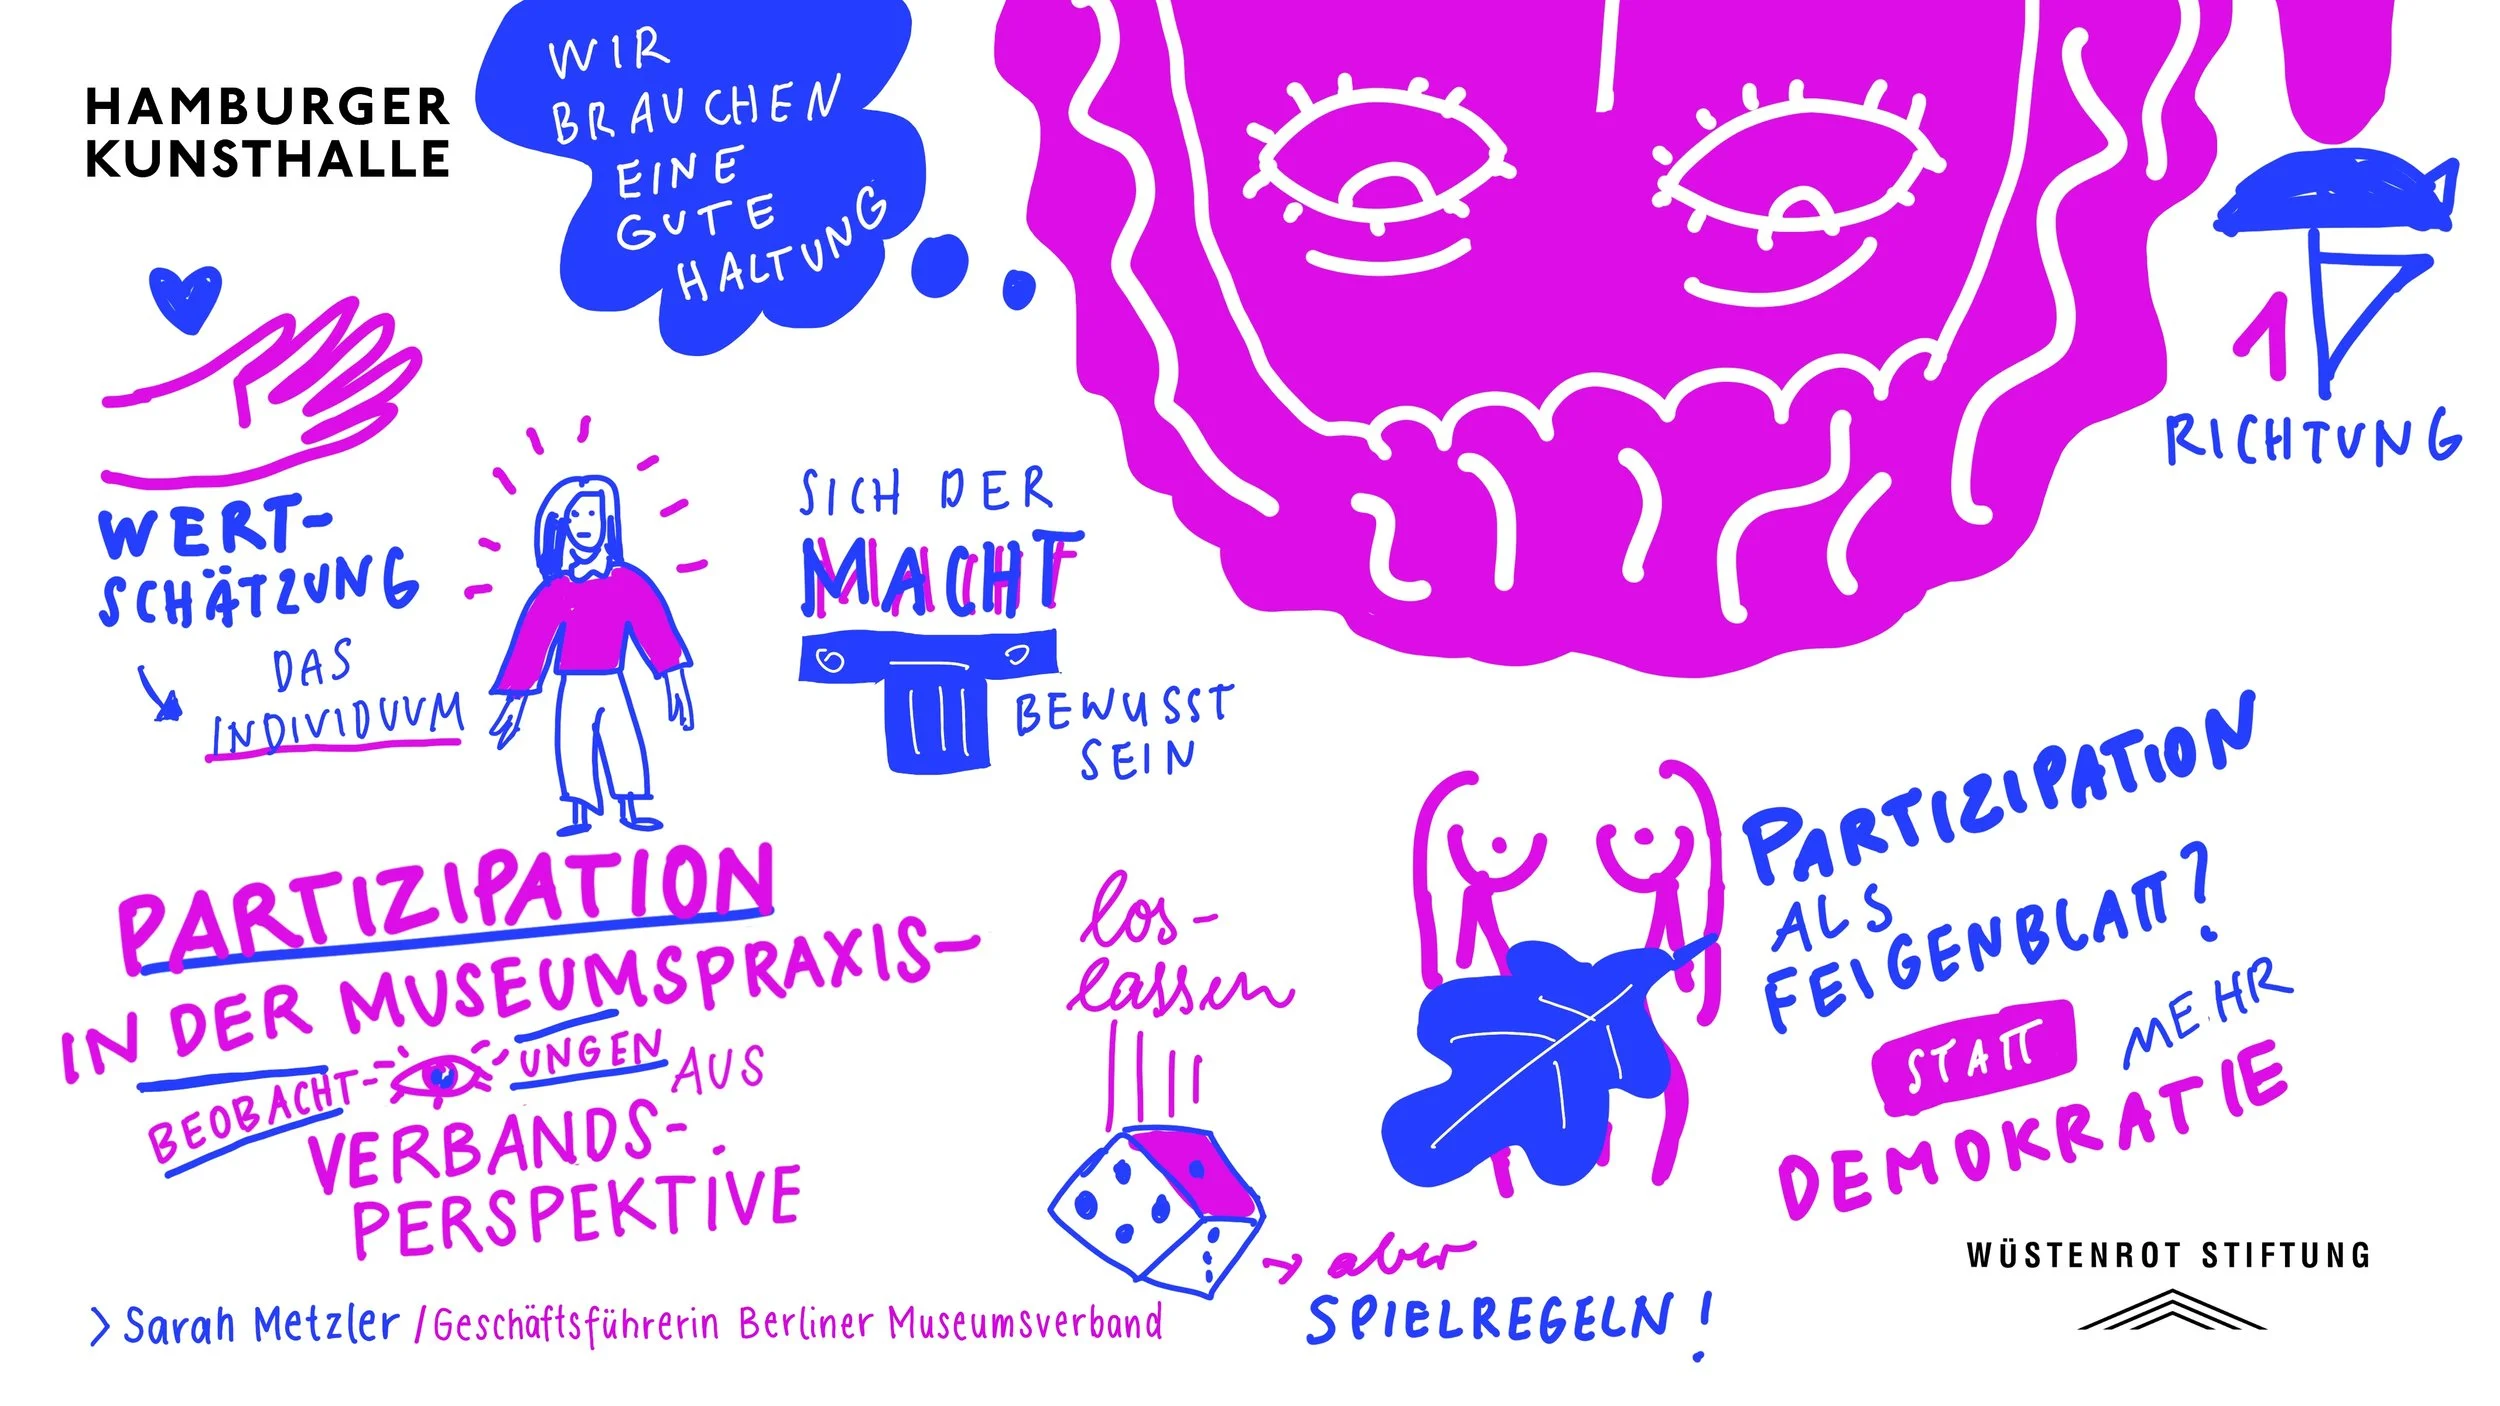 HAMBURGER
KUNSTHALLE
WIR
BRAUCHEN
EINE
GUTE
HALTUNG
1
RICHTUNG
WERT-
SCHÄTZUNG
DAS
INDIVIDUUM
SICH DER
MACHT
BEWUSST
SEIN
PARTIZIPATION
IN DER MUSEUMSPRAXIS-
BEOBACHT-
UNGEN AUS
VERBANDS-
PERSPEKTIVE
> Sarah Metzler / Geschäftsführerin Berliner Museumsverband
los-
lassen
aber
SPIELREGELN!
PARTIZIPATION
ALS
FEIGENBLATT?
STATT
MEHR
DEMOKRATIE
WÜSTENROT STIFTUNG